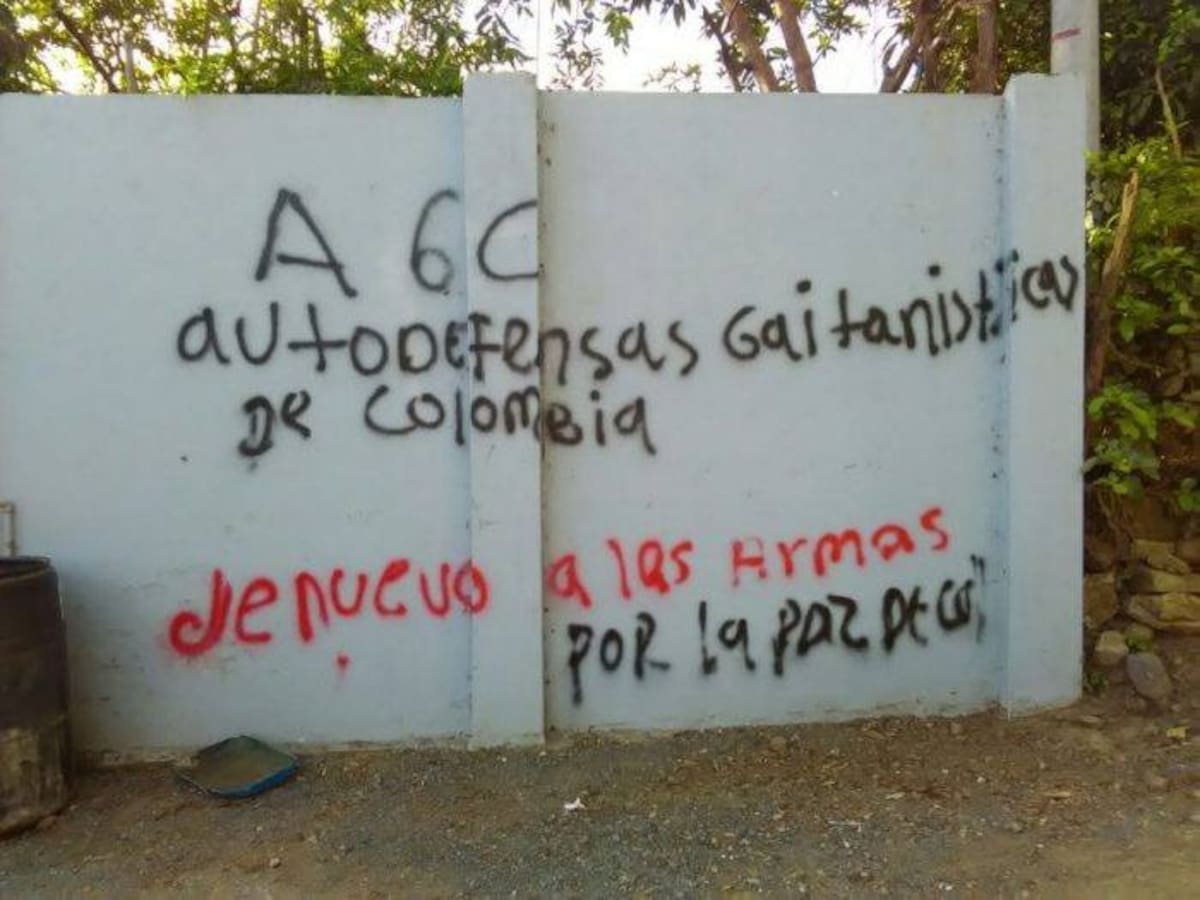 AGC
AUTODEFensas Gaitanisticas
De colombia
de nuevo a las Armas
POR la PAZ De Col"